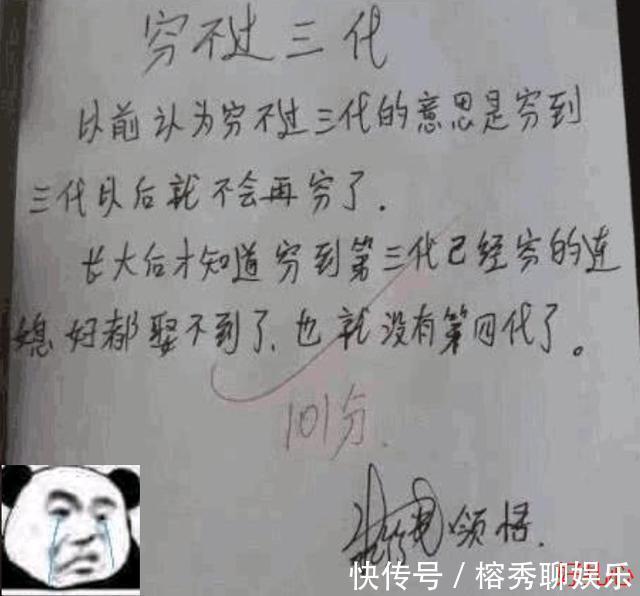 穷不过三代
以前认为穷不过三代的意思是穷到
三代以后就不会再穷了.
长大后才知道穷到第三代已经穷的连
媳妇都娶不到了,也就没有第四代了。
101分.
领悟.
快传号/榕秀聊娱乐